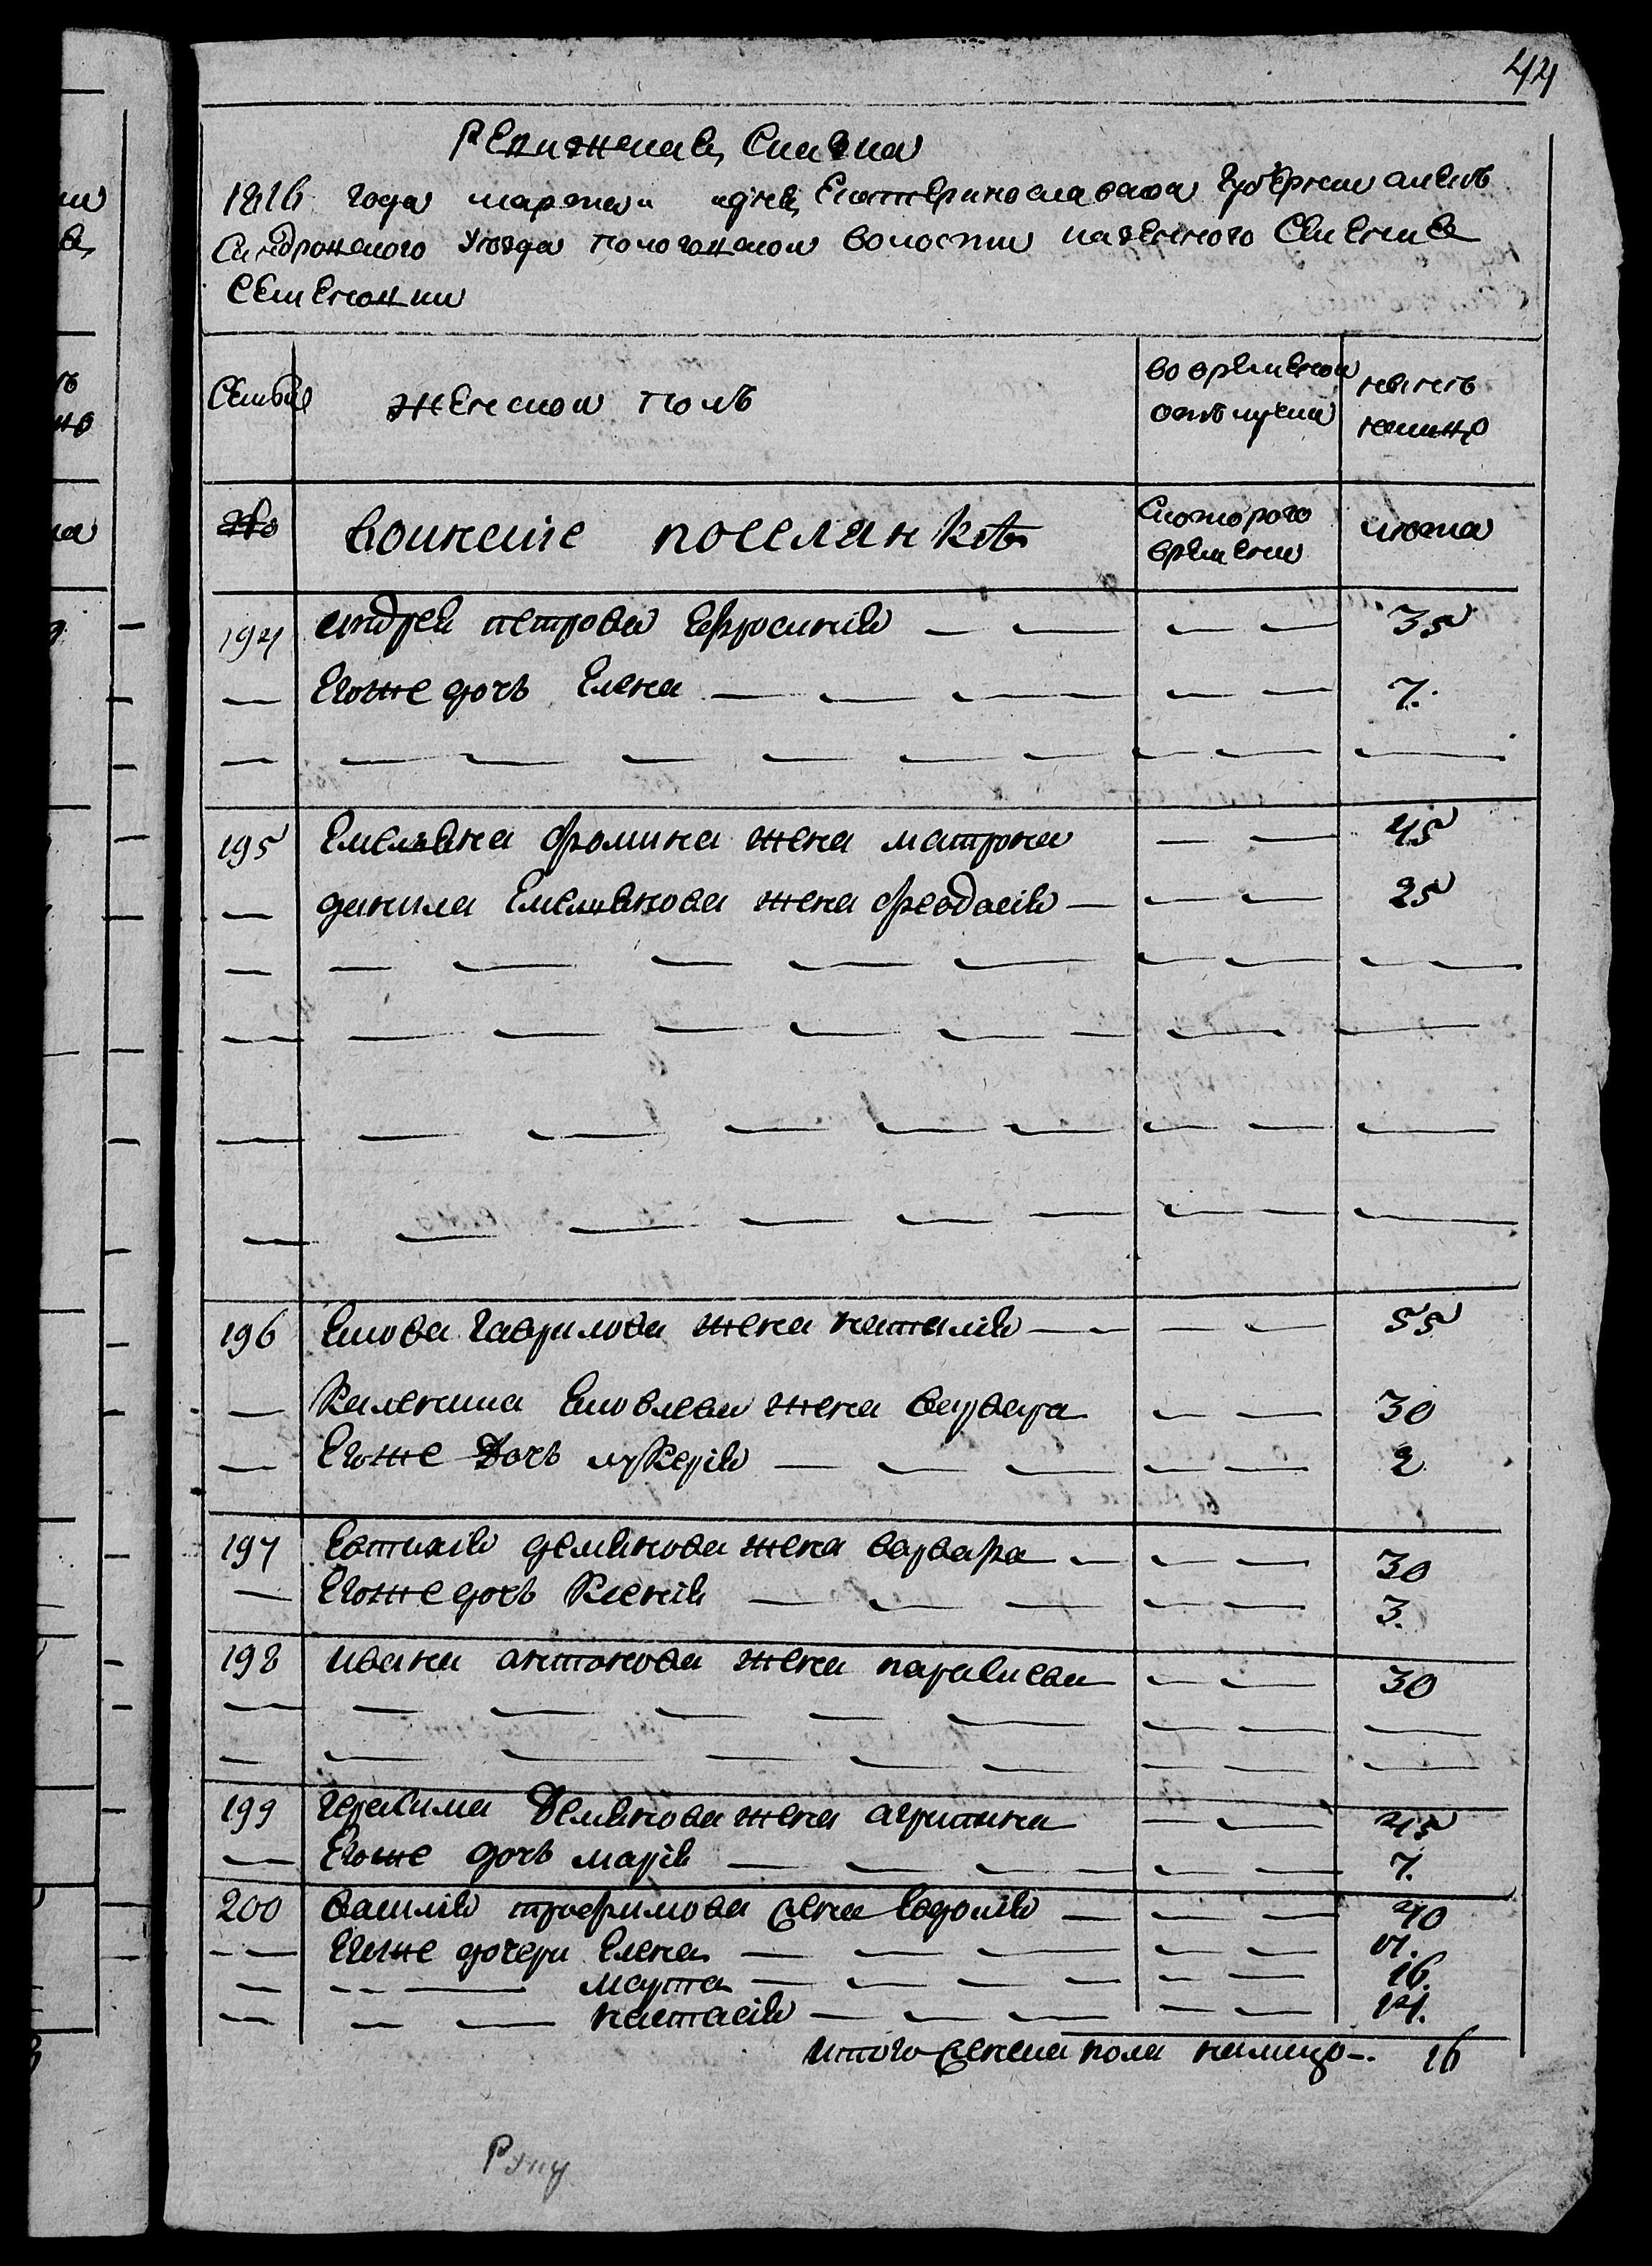 44
Ревижская Сказка
1816 года марта дня Екатеринославской Губернии Алекъ
Сандровского Уезда пологовской волости казенного Селения
Семеновки
Семьи женской полъ во временной отлучки ныне налицо
№ воинские поселянкѣ Скоторого времени лета
194 андрея петрова Ефросиния — — — — 35
— Егоже дочь Елена — — — — — 7.
195 Емельяна фомина жена матрона — — 45
— данила Емельянова жена феодосия — — — 25
196 Якова гаврилова жена наталия — — — — 55
— Каленика Яковлева жена варвара — — 30
— Егоже Дочь лукерия — — — — — 2
197 Евтихия демянова жена варвара — — — 30
— Егоже дочь Ксения — — — — — 3.
198 ивана антонова жена параскева — — 30
199 герасима Демянова жена агрипина — — 45
— Егоже дочь мария — — — — — — 7.
200 василия трофимова жена Евдокия — — — 40
— — Егоже дочери Елена — — — — — —
— — — — марта — — — — — — 16.
— — — — настасия — — — — — — 14.
итого женска пола налицо —. 16